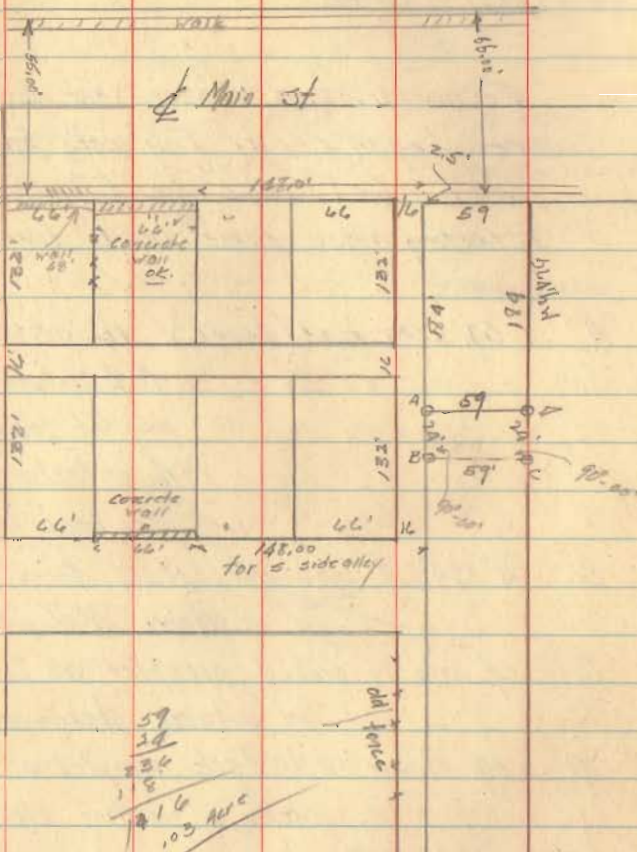 walk
66.00'
66.00'
℄ Main St
N.S.
148.0'
66'
66'
66
16
59
wall
68'
concrete
wall
OK.
132'
132'
184'
184
16
16
A
59
24'
24'
132'
132'
B
59'
C
90°-00'
90°-00'
concrete
wall
66'
66'
66'
16
148.00
for s. side alley
old fence
59
24
236
118
1416
.03 Acre